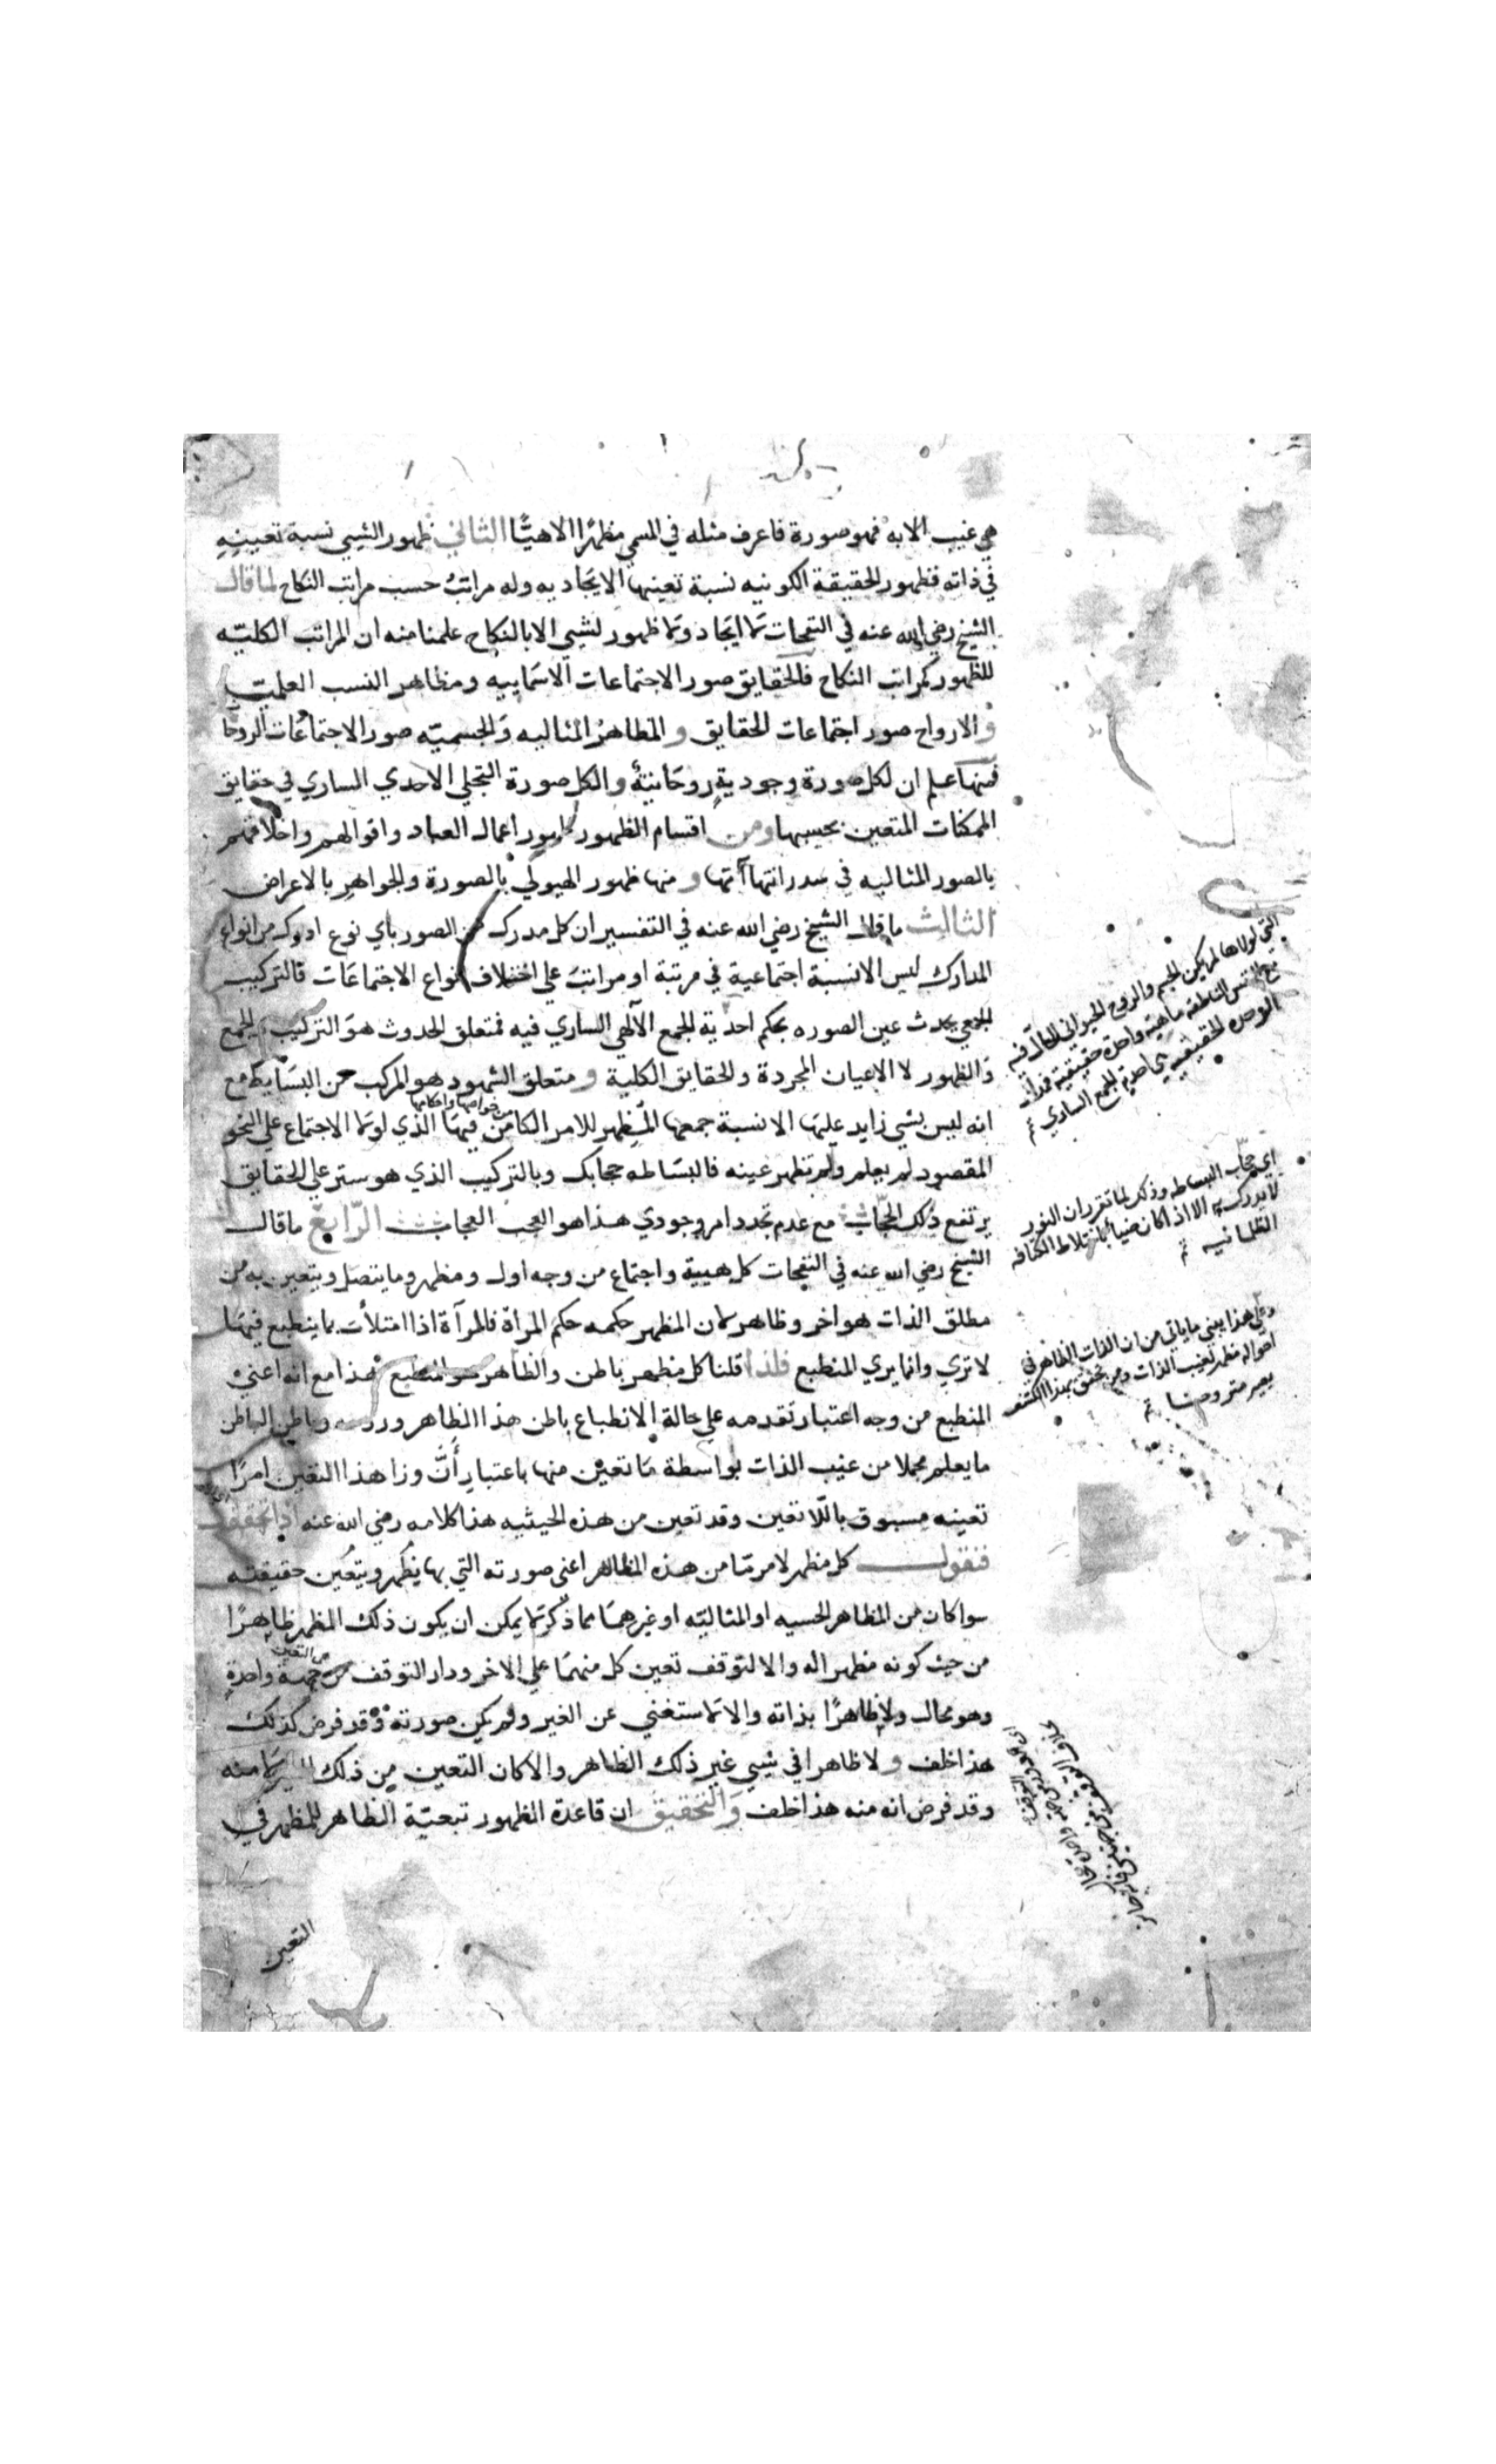 هي غيب الا به فهو صورة فاعرف مثله في المسمى مظهرًا الاهيًّا الثاني ظهور الشيي نسبة تعيينه
في ذاته فظهور الحقيقة الكونيه نسبة تعينها الايجاديه وله مراتبُ حسب مراتب النكاح لما قالـ
الشيخ رضي الله عنه في النفحات ثما ايجاد وثما ظهور لشيي الا بالنكاح علمنا منه ان المراتب الكليّه
للظهور كمراتب النكاح فالحقايق صور الاجتماعات الاسمايبه ومظاهر النسب العلميه
والارواح صور اجتماعات الحقايق والمظاهر المثاليه والجسميّه صور الاجتماعات الروحا
فمنها علم ان لكل صورة وجودية روحانية والكل صورة التجلي الاحدي الساري في حقايق
الممكنات المتعين بحسبها ومن اقسام الظهور ظهور اعمال العباد واقوالهم واخلاقهم
بالصور المثاليه في سدرانتهاآتها ومنها ظهور الهيولي بالصورة والجواهر بالاعراض
الثالث ما قال الشيخ رضي الله عنه في التفسير ان كل مدرك من الصور باي نوع ادرك من انواع
المدارك ليس الا نسبة اجتماعية في مرتبة او مراتب علي اختلاف انواع الاجتماعات فالتركيب
الجمعي يحدث عين الصوره بحكم احدية الجمع الآلهي الساري فيه فمتعلق الحدوث هو التركيب والجمع
والظهور لا الاعيان المجردة والحقايق الكلية ومتعلق الشهود هو المركب من البسايط مع
من خواصها واحكامها
انه ليس بشي زايد عليها الا نسبة جمعها المظهر للامر الكامن فيها الذي لولا الاجتماع علي النحو
المقصود لم يعلم ولم تظهر عينه فالبساطه حجابك وبالتركيب الذي هو ستر علي الحقايق
يرتفع ذلك الحجاب مع عدم تجدد امر وجودي هذا هو العجب العجاب الرابع ما قال
الشيخ رضي الله عنه في النفحات كل هيية واجتماع من وجه اول ومظهر وما يتصل ويتعين به من
مطلق الذات هو اخر وظاهر كان المظهر حكمه حكم المرآة فالمرآة اذا امتلأت بما ينطبع فيها
لا تري وانما يري المنطبع فلذا قلنا كل مظهر باطن والظاهر هو المنطبع هذا مع انه اعني
المنطبع من وجه اعتبار تقدمه علي حالة الانطباع باطن هذا الظاهر وباطن الباطن
ما يعلم مجملا من غيب الذات بواسطة ما تعين منها باعتبار أنّ وزا هذا التعين امرًا
تعينه مسبوق باللا تعين وقد تعين من هذه الحيثيه هذا كلامه رضي الله عنه اذا تحققت
فنقول كل مظهر لامر ما من هذه المظاهر اعني صورته التي بها يظهر ويتعين حقيقته
سوا كان من المظاهر الحسيه او المثاليّه او غيرهما مما ذكر ثما يمكن ان يكون ذلك المظهر ظاهرًا
من حيث كونه مظهرا له والا لتوقف تعين كل منهما علي الاخر ودار التوقف من جهة واحدة
من التعين
وهو محال ولا ظاهرًا بذاته والا لاستغني عن الغير ولم يكن صورته وقد فرض كذلك
هذا خلف ولا ظاهرا في شيي غير ذلك الظاهر والا كان التعين من ذلك لا منه
وقد فرض انه منه هذا خلف والتحقيق ان قاعدة الظهور تبعيّة الظاهر للمظهر في
التعين
التي لولاها لم يكن الجسم والروح الحيواني
مع النفس الناطقه ماهية واحدة حقيقية
الوحده الحقيقيه الجمع الساري
اي حجاب البساطه وذكر لما تقرر ان النور
لا يدرك الا اذا كان ضياً باختلاط الكثافه
الظلمانيه
وعلي هذا يبني ما ياتي من ان الذات الظاهر في
احواله مظهر لغيب الذات ومن تحقق بهذا الكشف